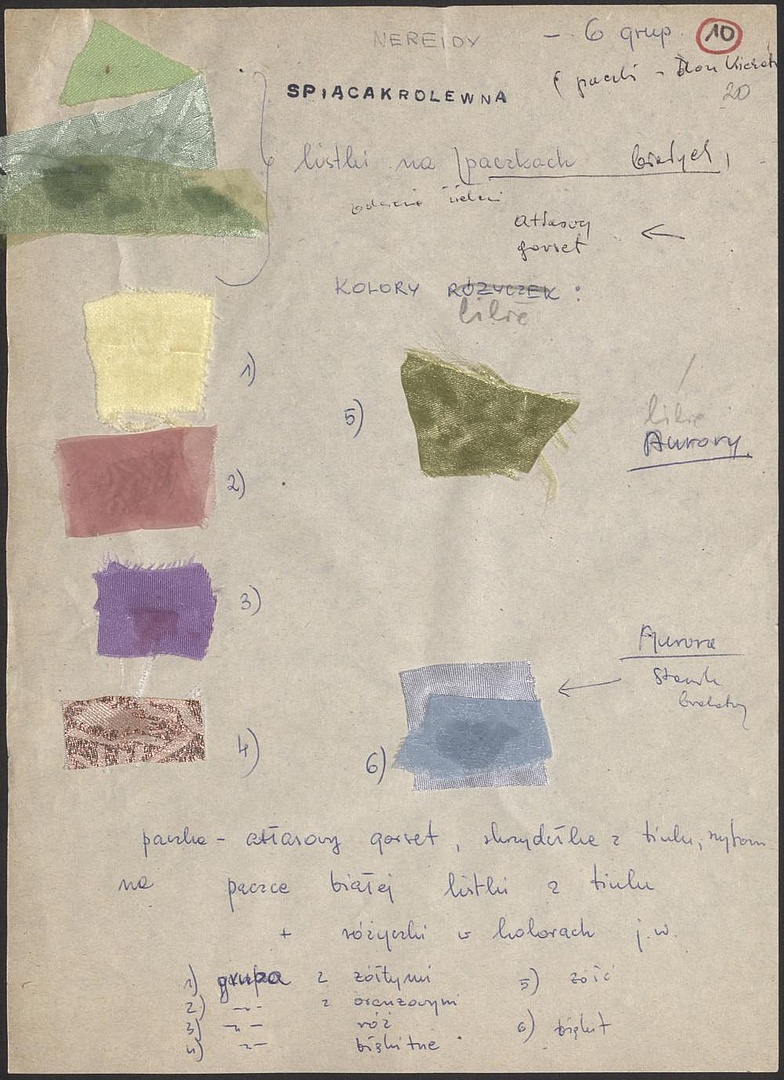 NEREIDY – 6 grup. 10
SPIĄCAKROLEWNA
( paczki –
20
listki na paczkach białych,
atłasowy
gorset ←
KOLORY RÓŻYCZEK :
lilie
1)
5)
lilie
Aurory
2)
3)
Aurora
4)
6)
paczka – atłasowy gorset, skrzydełka z tiulu,
na paczce białej listki z tiulu
+ różyczki w kolorach j.w.
1) grupa z żółtymi
2) –"– z oranżowymi
3) –"– róż
4) –"– błękitne
5)
6) błękit